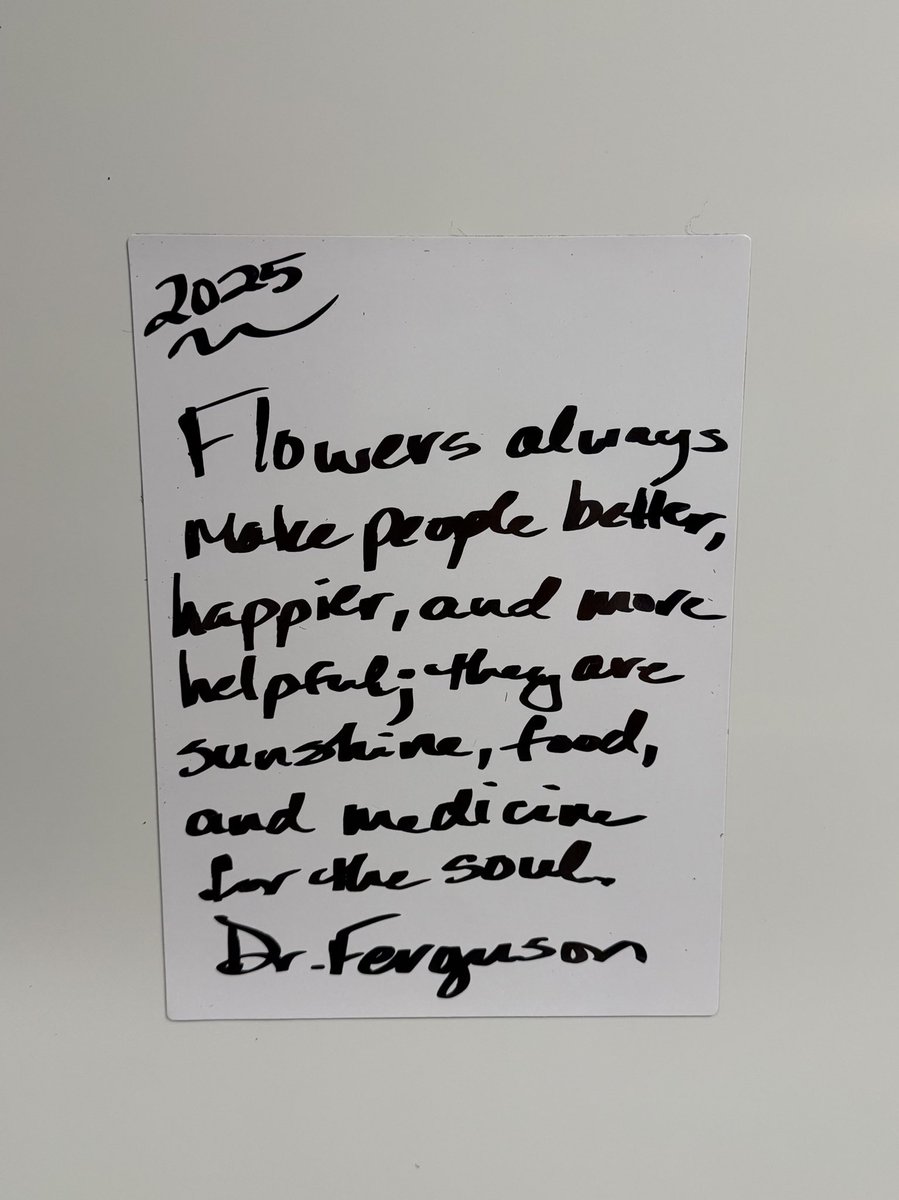 2025
Flowers always
Make people better,
happier, and more
helpful; they are
sunshine, food,
and medicine
for the soul.
Dr. Ferguson